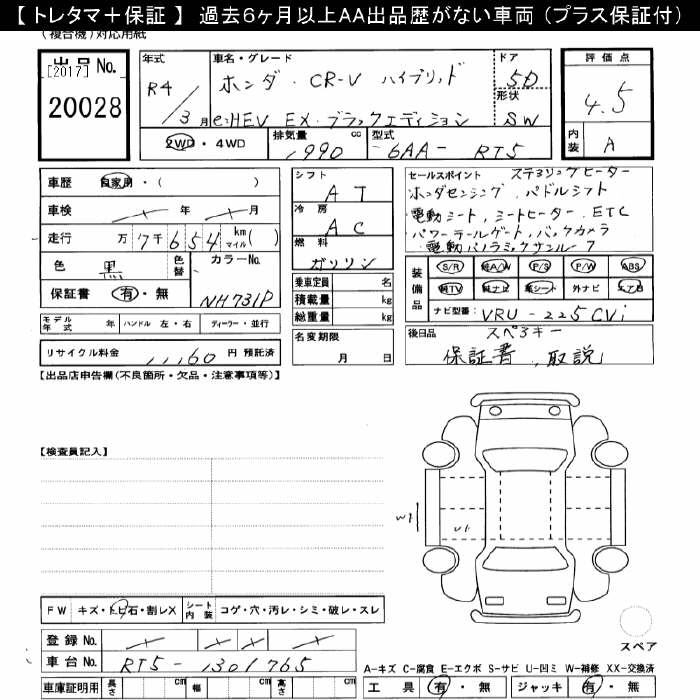 【 トレタマ＋保証 】 過去6ヶ月以上AA出品歴がない車両（プラス保証付）
(複合機)対応用紙
出品No.
[2017]
20028
年式 R4/3月
車名・グレード ホンダ・CR-V ハイブリッド
e:HEV EX・ブラックエディション
ドア 5D
形状 SW
評価点 4.5
内装 A
2WD・4WD
排気量 1990 cc
型式 6AA- RT5
車歴 自家用・( )
車検 年 月
走行 万 7千654 km マイル( )
色 黒
色替
カラーNo. NH731P
保証書 有・無
モデル年式 年 ハンドル 左・右 ディーラー・並行
リサイクル料金 11,160 円 預託済
シフト AT
冷房 AC
燃料 ガソリン
乗車定員 名
積載量 kg
総重量 kg
名変期限
月 日
セールスポイント ステアリングヒーター
ホンダセンシング、パドルシフト
電動シート、シートヒーター、ETC
パワーテールゲート、バックカメラ
電動パノラミックサンルーフ
装備品 S/R 純A/W P/S P/W ABS
純TV 純ナビ 革シート 外ナビ エアB
ナビ型番: VRU-225CVi
後日品 スペアキー
保証書、取説
【出品店申告欄(不良箇所・欠品・注意事項等)】
【検査員記入】
W1 U1
FW キズ・トビ石・割レX シート内装 コゲ・穴・汚レ・シミ・破レ・スレ
登録No.
車台No. RT5-1301765
車庫証明用 長さ cm 幅 cm 高さ cm
スペア
A-キズ C-腐食 E-エクボ S-サビ U-凹ミ W-補修 XX-交換済
工具 有・無 ジャッキ 有・無